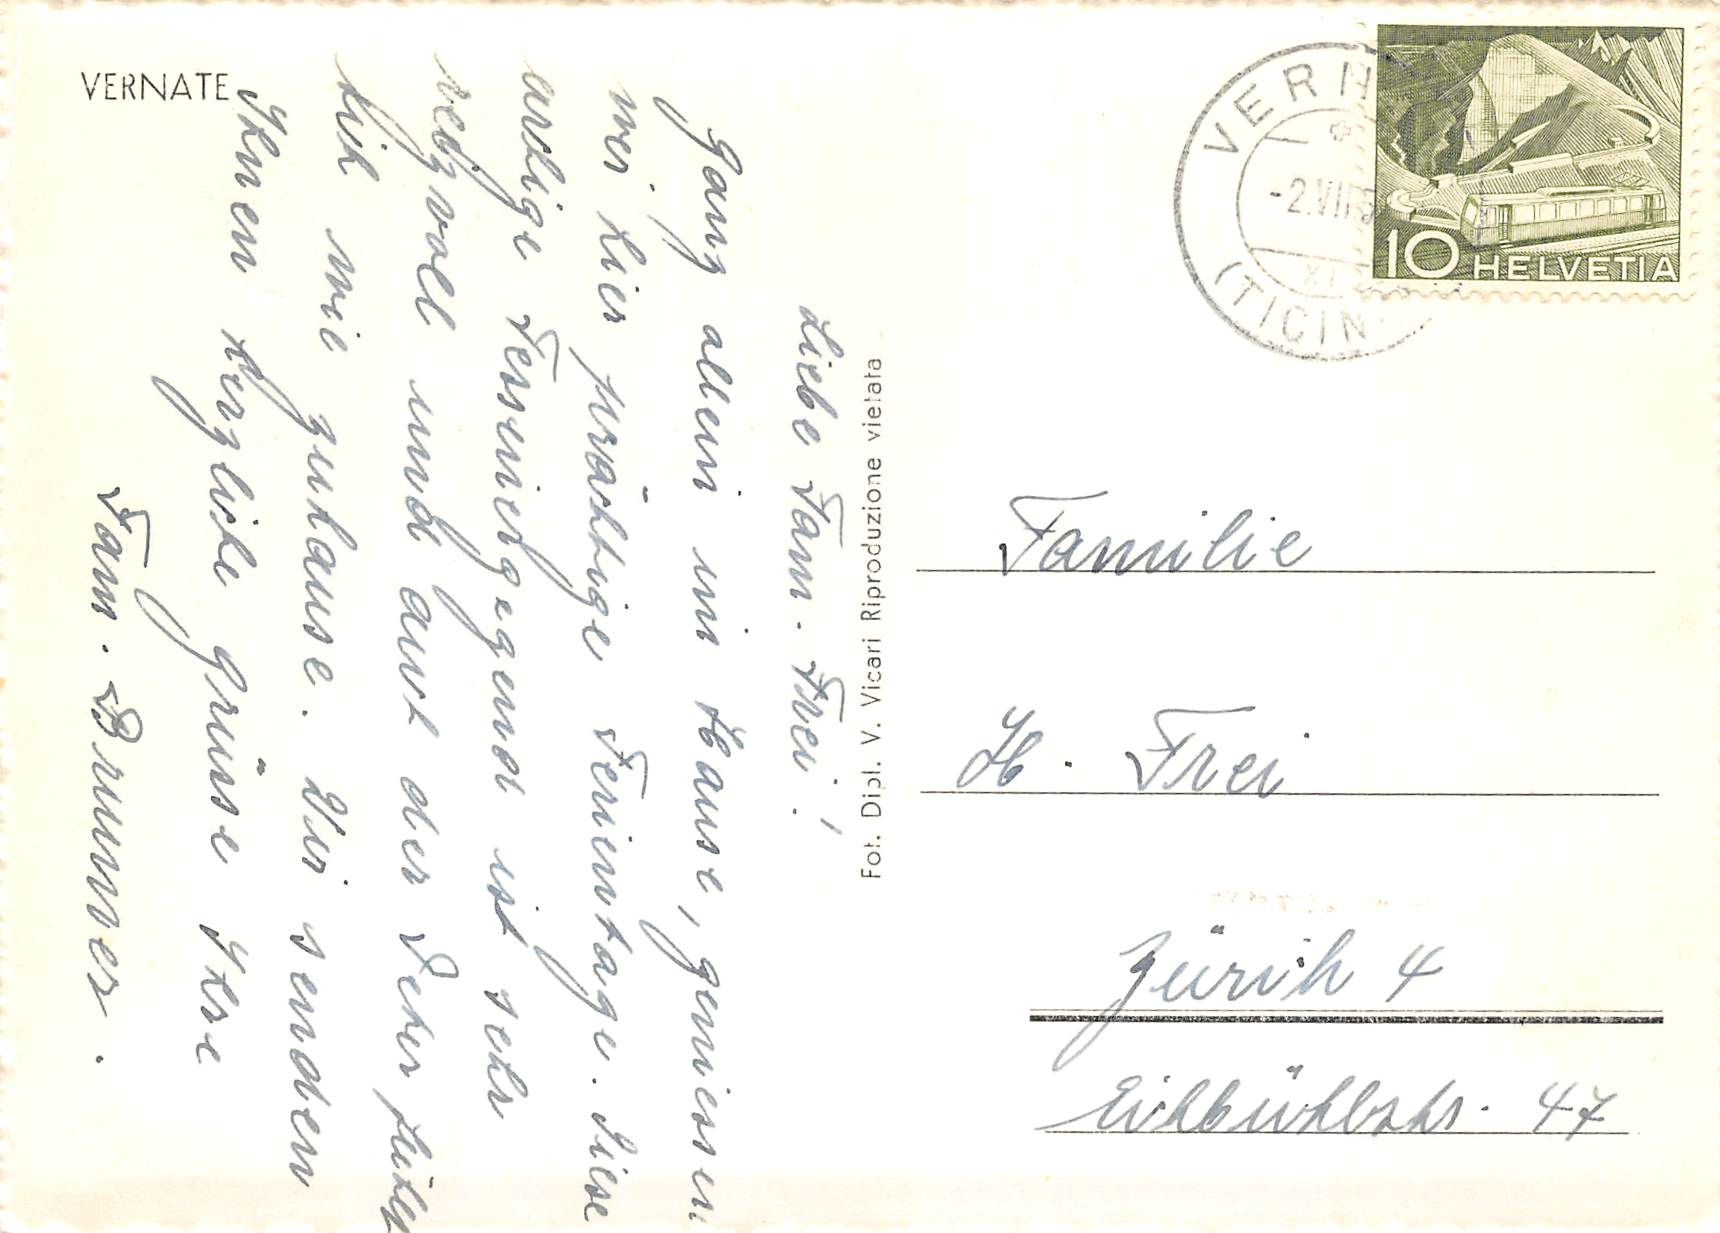 VERNATE
Liebe Fam. Frei!
Ganz allein im Hause, geniessen
wir hier prächtige Ferientage. Diese
Tessinergegend ist sehr
reizvoll und auch der
wie zuhause. Wir senden
Ihnen herzliche Grüsse Ihre
Fam. Brunner.
Fot. Dipl. V. Vicari Riproduzione vietata
VERN
-2.VII
XI
(TICIN
10 HELVETIA
Familie
H. Frei
Zürich 4
47